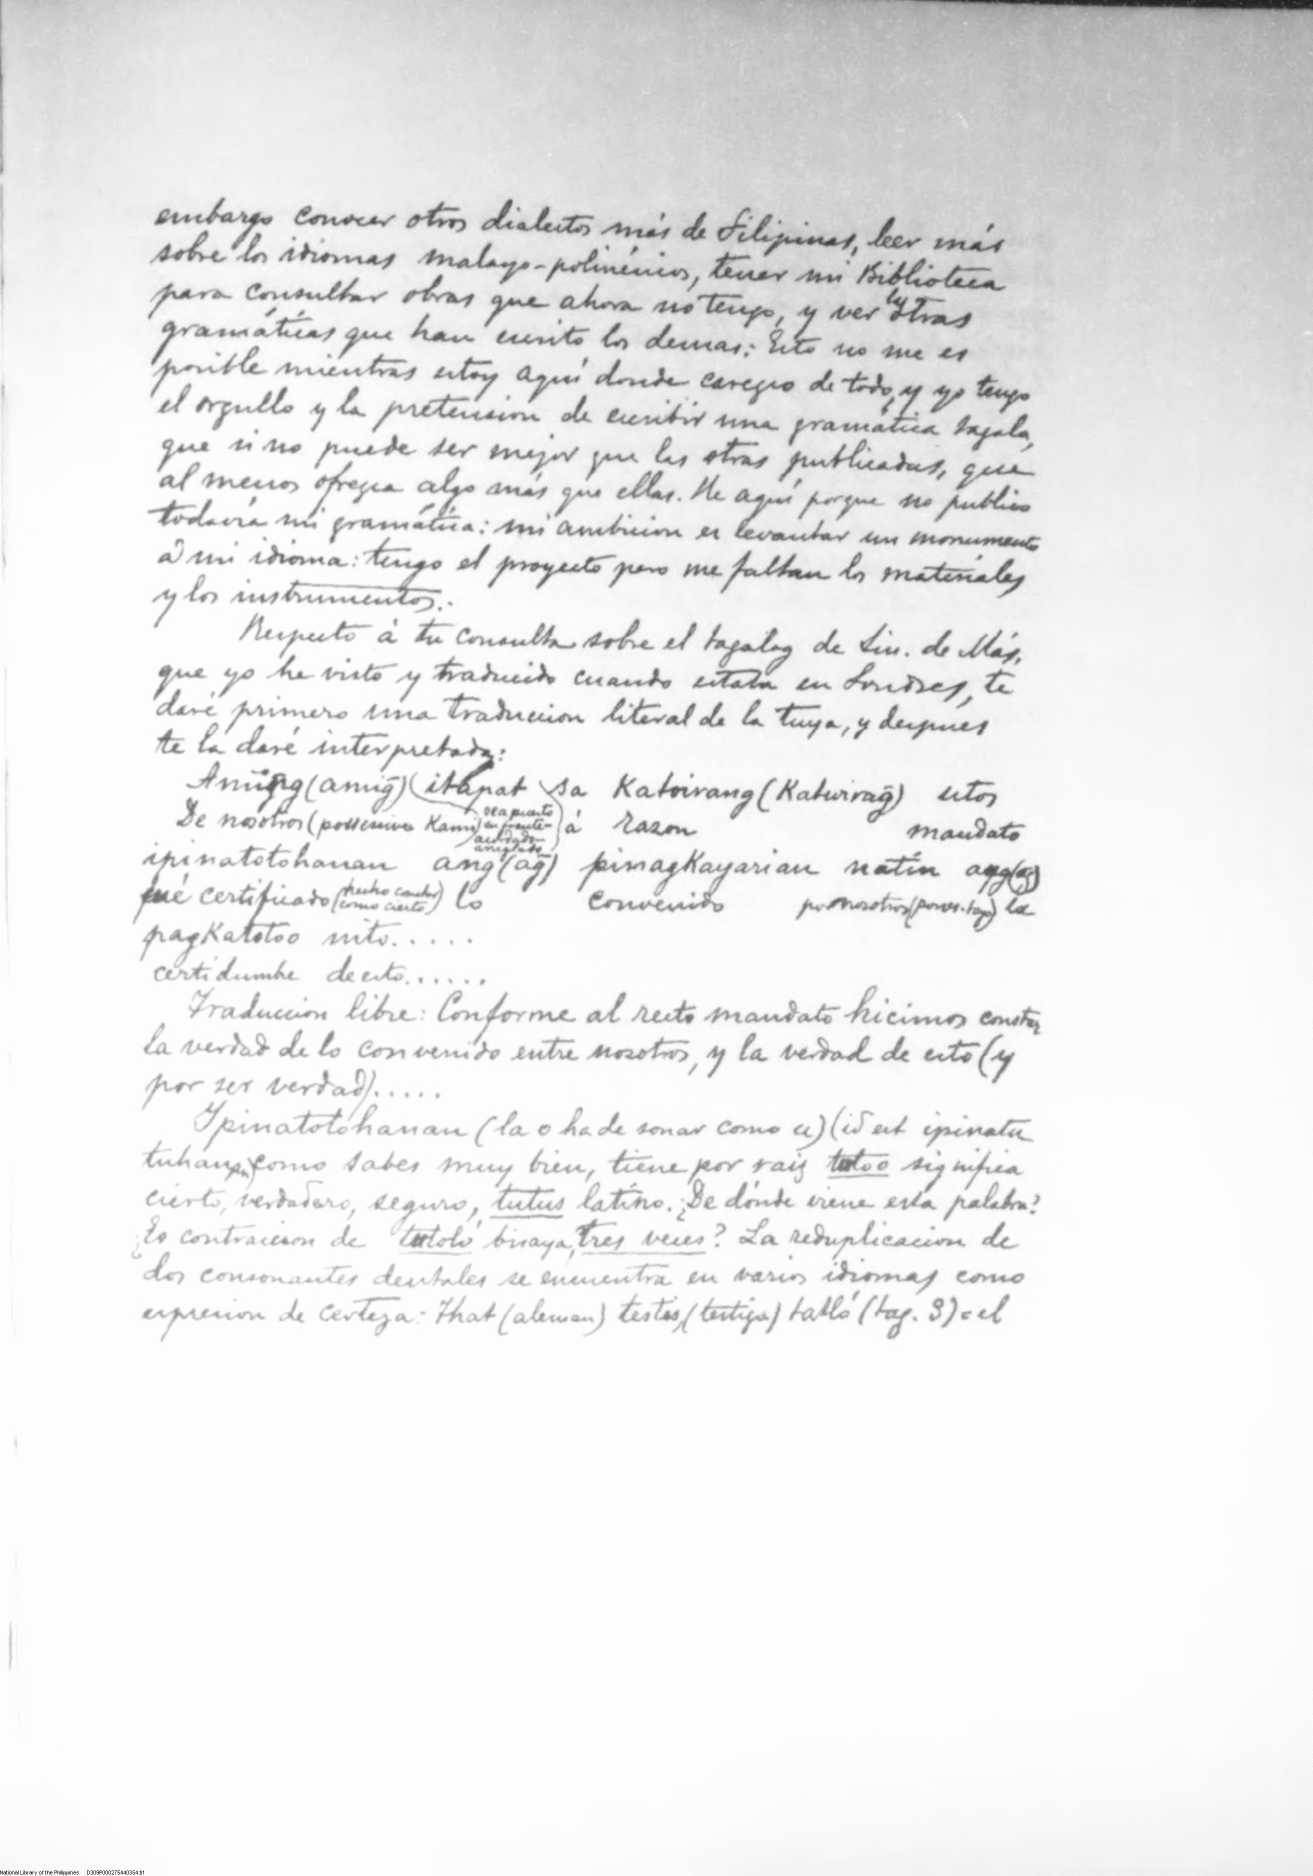 embargo conocer otros dialectos más de Filipinas, leer más
sobre los idiomas malayo-polinésicos, tener mi Biblioteca
para consultar obras que ahora no tengo, y ver las otras
gramáticas que han escrito los demas: Esto no me es
posible mientras estoy aquí donde carezco de todo, y yo tengo
el orgullo y la pretension de escribir una gramática tagala,
que si no puede ser mejor que las otras publicadas, que
al menos ofrezca algo más que ellas. He aquí porque no publico
todavía mi gramática: mi ambicion es levantar un monumento
á mi idioma: tengo el proyecto pero me faltan los materiales
y los instrumentos.
Respecto á tu consulta sobre el tagalog de Sin. de Más,
que yo he visto y traducido cuando estaba en Londres, te
daré primero una traduccion literal de la tuya, y despues
te la daré interpretada:
(amig̃) itapat sa Katoirang (Katuirag̃) utos
De nosotros (possessivo Kami) sea puesto en frente á razon mandato
ipinatotohanan ang (ag̃) pinagkayarian natin ang (ag̃)
fué certificado (hecho constar como cierto) lo convenido por nosotros la
pagkatotoo nito.....
certidumbre de esto......
Traduccion libre: Conforme al recto mandato hicimos constar
la verdad de lo convenido entre nosotros, y la verdad de esto (y
por ser verdad).....
Ypinatotohanan (la o ha de sonar como u) (id est ipinatu
tuhanan) como sabes muy bien, tiene por raiz totoo significa
cierto, verdadero, seguro, tutus latino. ¿De dónde viene esta palabra?
¿Es contraccion de totolo bisaya, tres veces? La reduplicacion de
dos consonantes dentales se encuentra en varios idiomas como
expresion de certeza: That (aleman) testis (testigo) tatló (tag. 3) = el
National Library of the Philippines